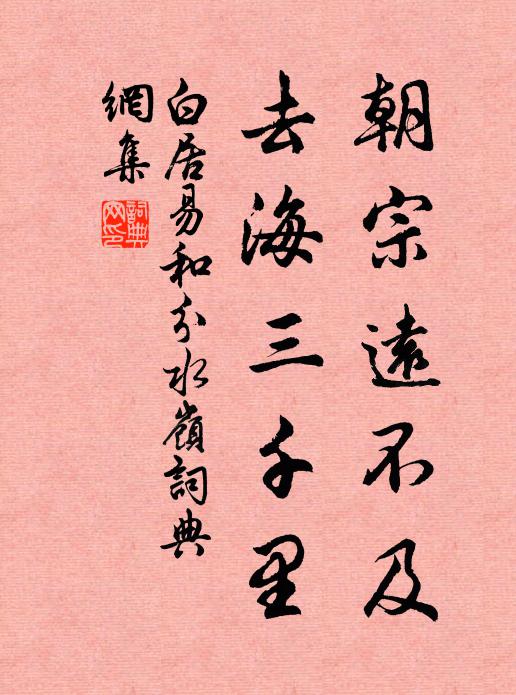 朝宗遠不及
去海三千里
白居易和分水嶺詞典
網集
詞典
网印